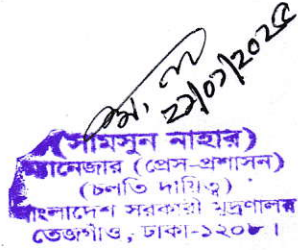 ২১/০১/২০২৫
(সামসুন নাহার)
ম্যানেজার (প্রেস-প্রশাসন)
(চলতি দায়িত্ব)
বাংলাদেশ সরকারী মুদ্রণালয়
তেজগাঁও, ঢাকা-১২০৮।